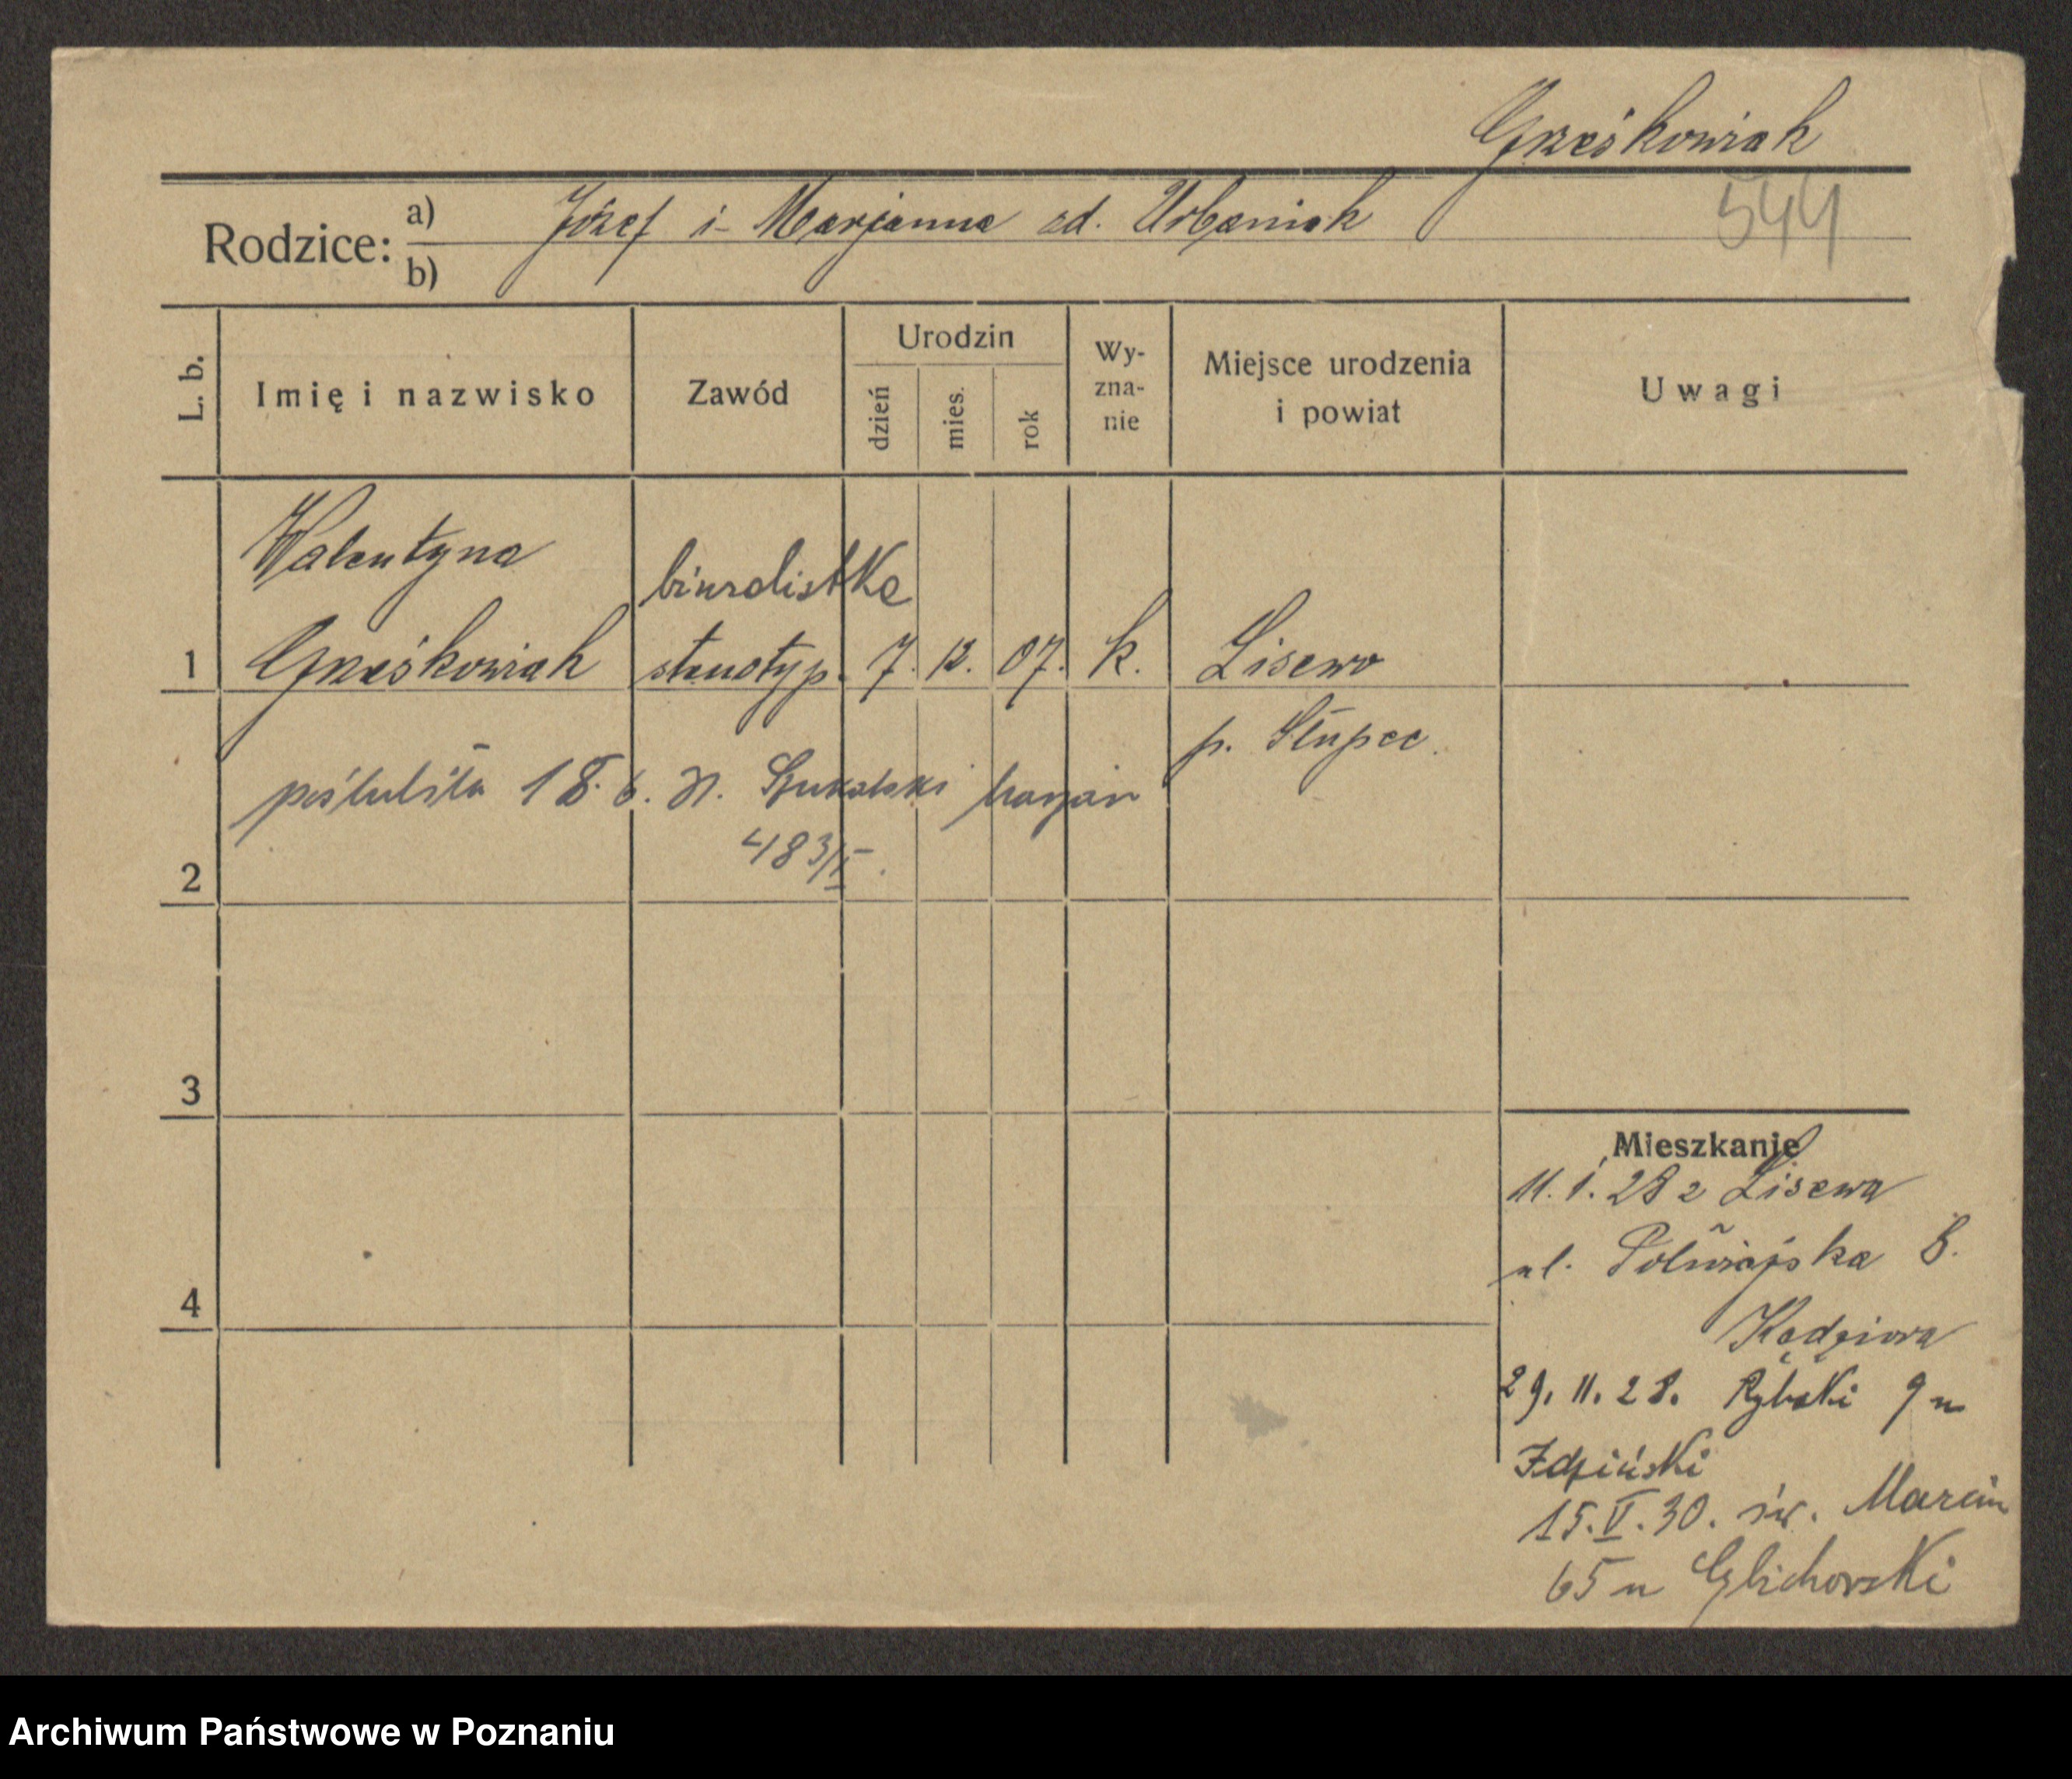 Grześkowiak
544
Rodzice: a) Józef i Marjanna zd. Urbaniak
b)
L. b. Imię i nazwisko Zawód Urodzin dzień mies. rok Wy-zna-nie Miejsce urodzenia i powiat Uwagi
Walentyna biuralistka
1 Grześkowiak stenotyp. 7. 12. 07. k. Lisewo
p. Słupca.
poślubiła 18. 6. Marjan
483/I.
2
3
4
Mieszkanie
11. 1. 28 z Lisewa
ul. Półwiejska 8.
Kędziora
29. 11. 28. Rybaki 9 u
Zdziński
15. V. 30. św. Marcin
65 u Glichowski
Archiwum Państwowe w Poznaniu